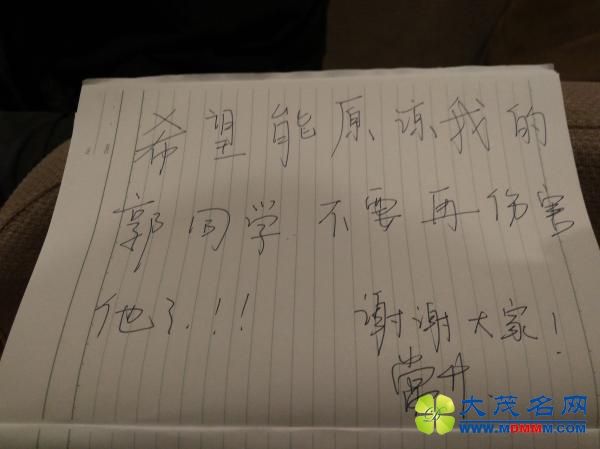 希望能原谅我的
郭同学不要再伤害
他了!!!
谢谢大家!
大茂名网
www.MDMMM.com